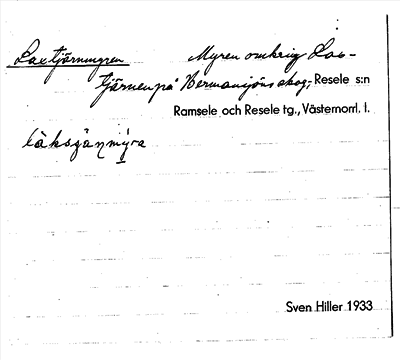 Laxtjärnmyren Myren omkrig Lax-
tjärnen på Hermansjöns skog, Resele s:n
Ramsele och Resele tg., Västernorrl. l.
läksjänmýra
Sven Hiller 1933